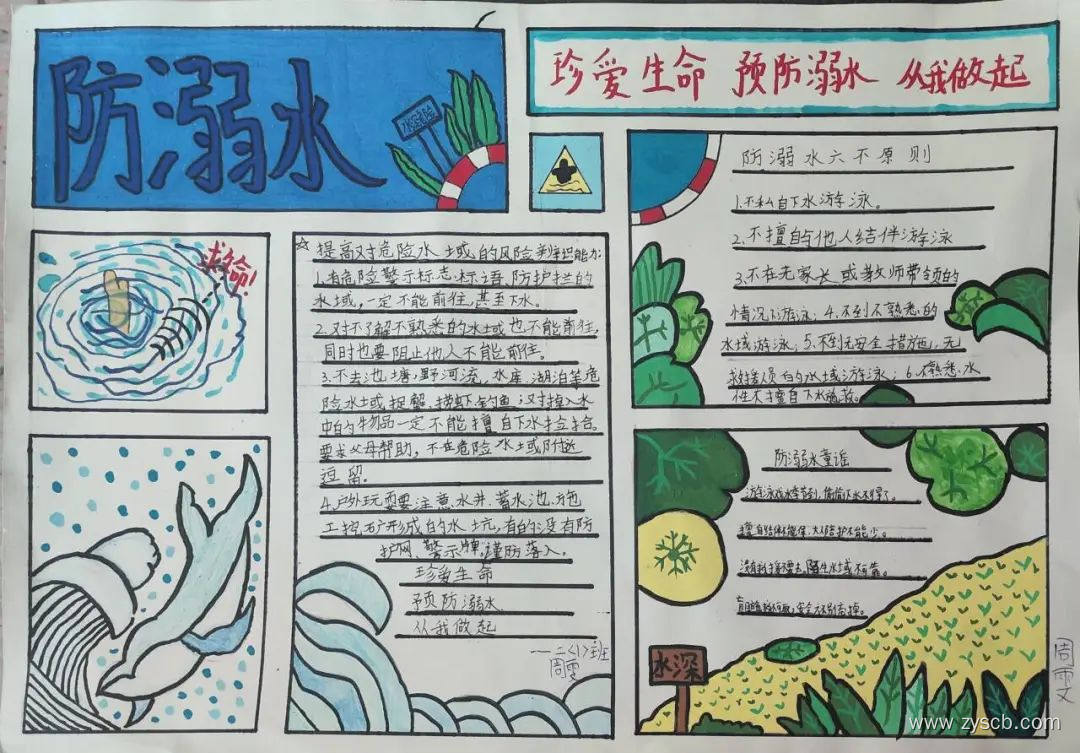 防溺水
水深危险
珍爱生命 预防溺水 从我做起
救命!
☆提高对危险水域的风险辨识能力:
1.有危险警示标志、标语、防护拦的
水域,一定不能前往,甚至下水。
2.对不了解不熟悉的水域也不能前往,
同时也要阻止他人不能前往。
3.不去池塘,野河流,水库,湖泊等危
险水域捉蟹、捞虾、钓鱼;对掉入水
中的物品一定不能擅自下水捡拾。
要求父母帮助,不在危险水域附近
逗留。
4.户外玩耍要注意水井、蓄水池、施
工挖矿形成的水坑,有的没有防
护网、警示牌,谨防落入。
珍爱生命
预防溺水
从我做起
——二<1>班
周雯
防溺水六不原则
1.不私自下水游泳。
2.不擅自与他人结伴游泳
3.不在无家长或教师带领的
情况下游泳;4.不到不熟悉的
水域游泳;5.不到无安全措施,无
救援人员的水域游泳;6.不熟悉水
性不擅自下水施救。
防溺水童谣
游泳戏水季节到,偷偷下水不得了。
擅自结伴不能保,大人陪护不能少。
没有救护不要去,陌生水域不可靠。
盲目施救不可取,安全六不别忘掉。
水深
周雯文
www.zyscb.com